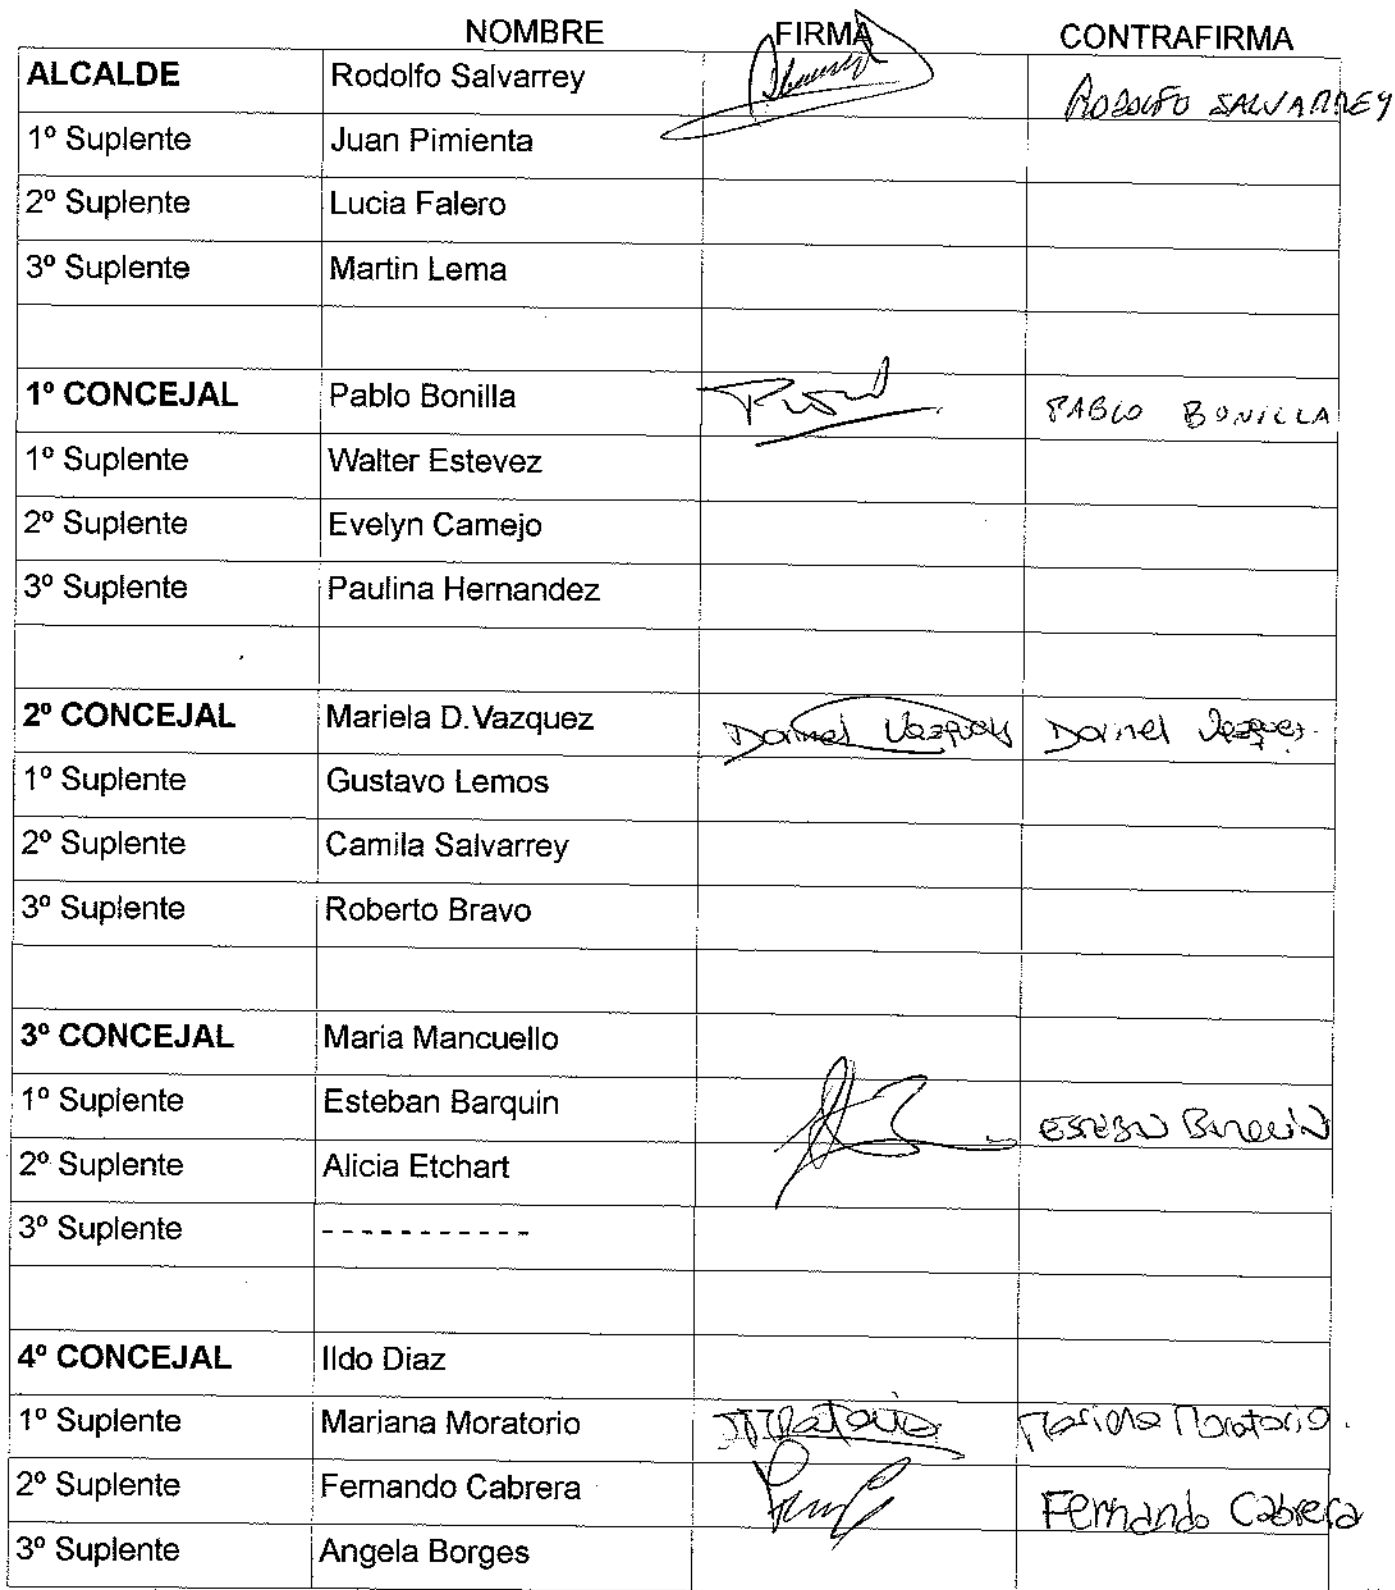 NOMBRE FIRMA CONTRAFIRMA
ALCALDE Rodolfo Salvarrey RODOLFO SALVARREY
1º Suplente Juan Pimienta
2º Suplente Lucia Falero
3º Suplente Martin Lema
1º CONCEJAL Pablo Bonilla PABLO BONILLA
1º Suplente Walter Estevez
2º Suplente Evelyn Camejo
3º Suplente Paulina Hernandez
2º CONCEJAL Mariela D.Vazquez Dorinel Vazquez Dorinel Vazquez.
1º Suplente Gustavo Lemos
2º Suplente Camila Salvarrey
3º Suplente Roberto Bravo
3º CONCEJAL Maria Mancuello
1º Suplente Esteban Barquin ESTEBAN BARQUIN
2º Suplente Alicia Etchart
3º Suplente -----------
4º CONCEJAL Ildo Diaz
1º Suplente Mariana Moratorio Mariana Moratorio.
2º Suplente Fernando Cabrera Fernando Cabrera
3º Suplente Angela Borges